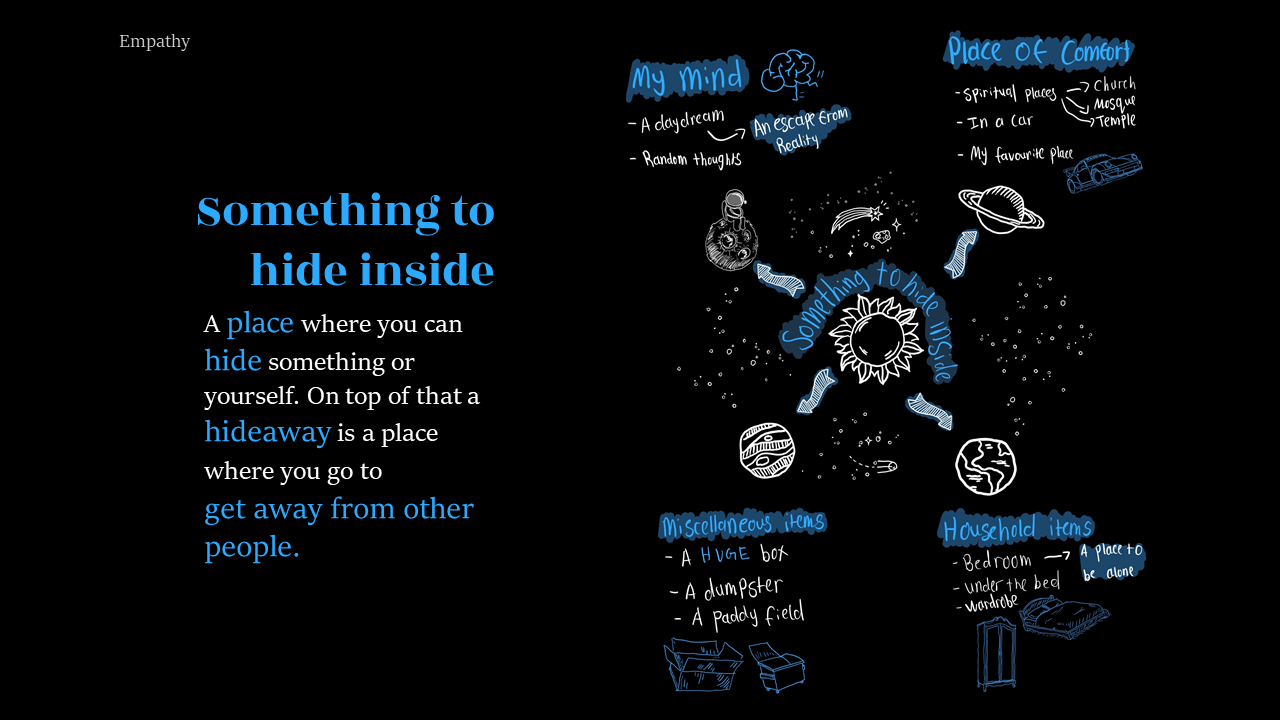 Empathy
Something to
hide inside
A place where you can
hide something or
yourself. On top of that a
hideaway is a place
where you go to
get away from other
people.
My mind
- A daydream
An escape from
Reality
- Random thoughts
Place of Comfort
- Spiritual places
Church
Mosque
Temple
- In a car
- My favourite place
Something to hide inside
Miscellaneous items
- A HUGE box
- A dumpster
- A paddy field
Household items
- Bedroom
A place to
be alone
- under the bed
- wardrobe